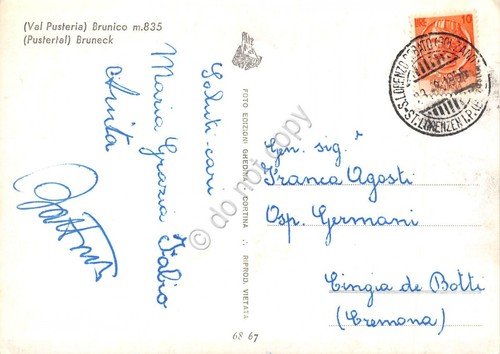 (Val Pusteria) Brunico m.835
(Pustertal) Bruneck
Saluti cari
Maria Grazia Fabio
Anita
FOTO EDIZIONI GHEDINA - CORTINA ∴ RIPROD. VIETATA
do not copy
10
S. LORENZO
ST. LORENZEN
Gen. sig.ª
Franca Agosti
Osp. Germani
Cingia de Botti
(Cremona)
68 67